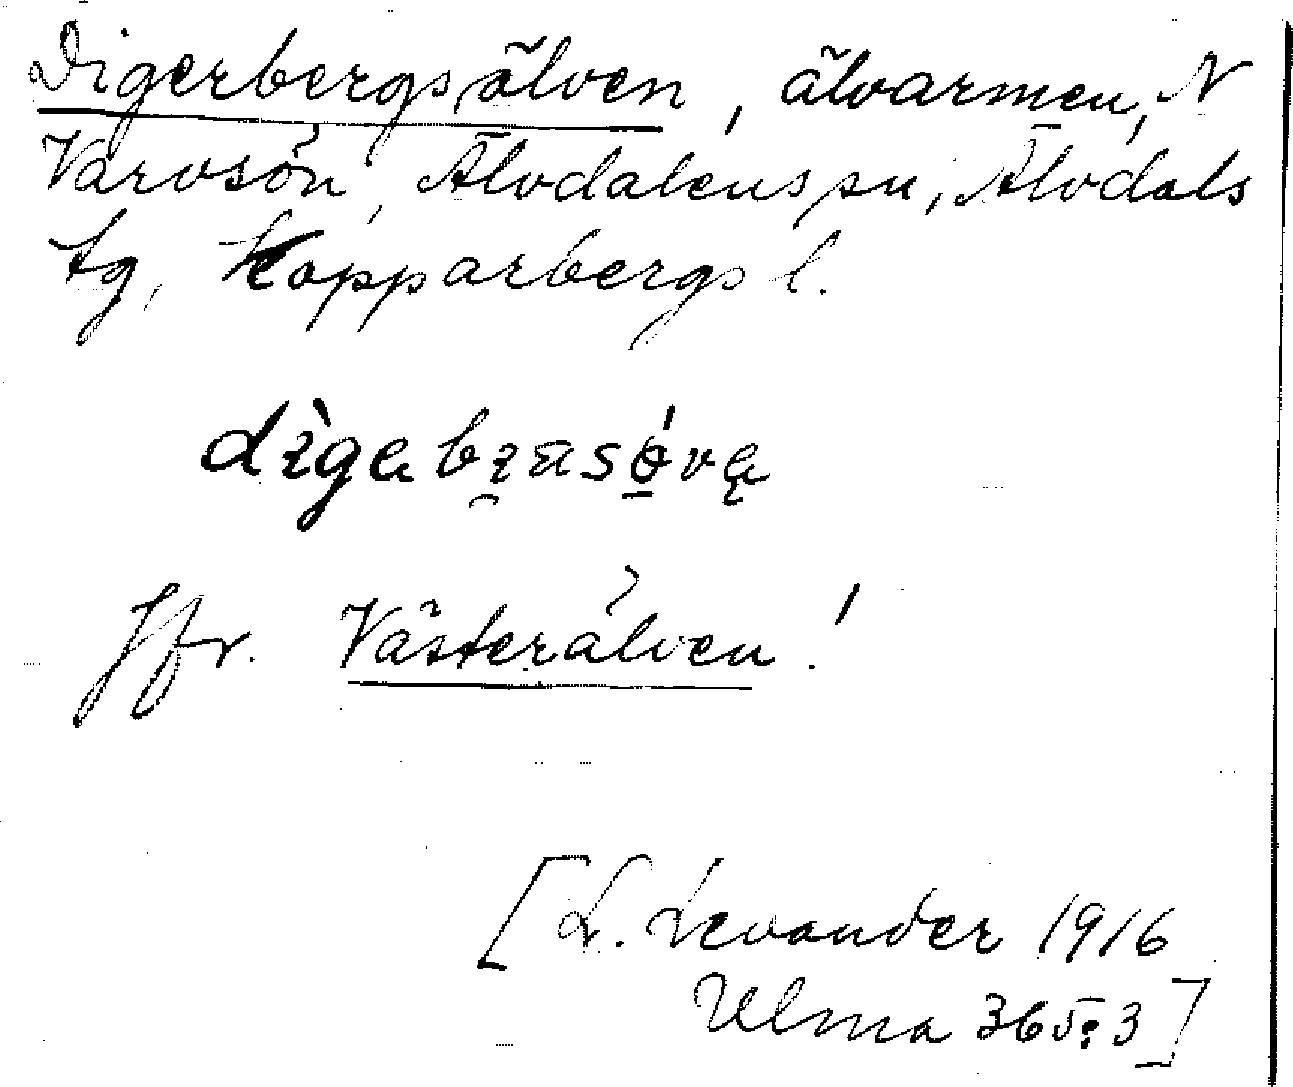 Digerbergsälven, älvarmen, N
Varvsön, Älvdalens sn, Älvdals
tg, Kopparbergs l.
Jfr. Västerälven!
[L. Levander 1916
Ulma 365:3]